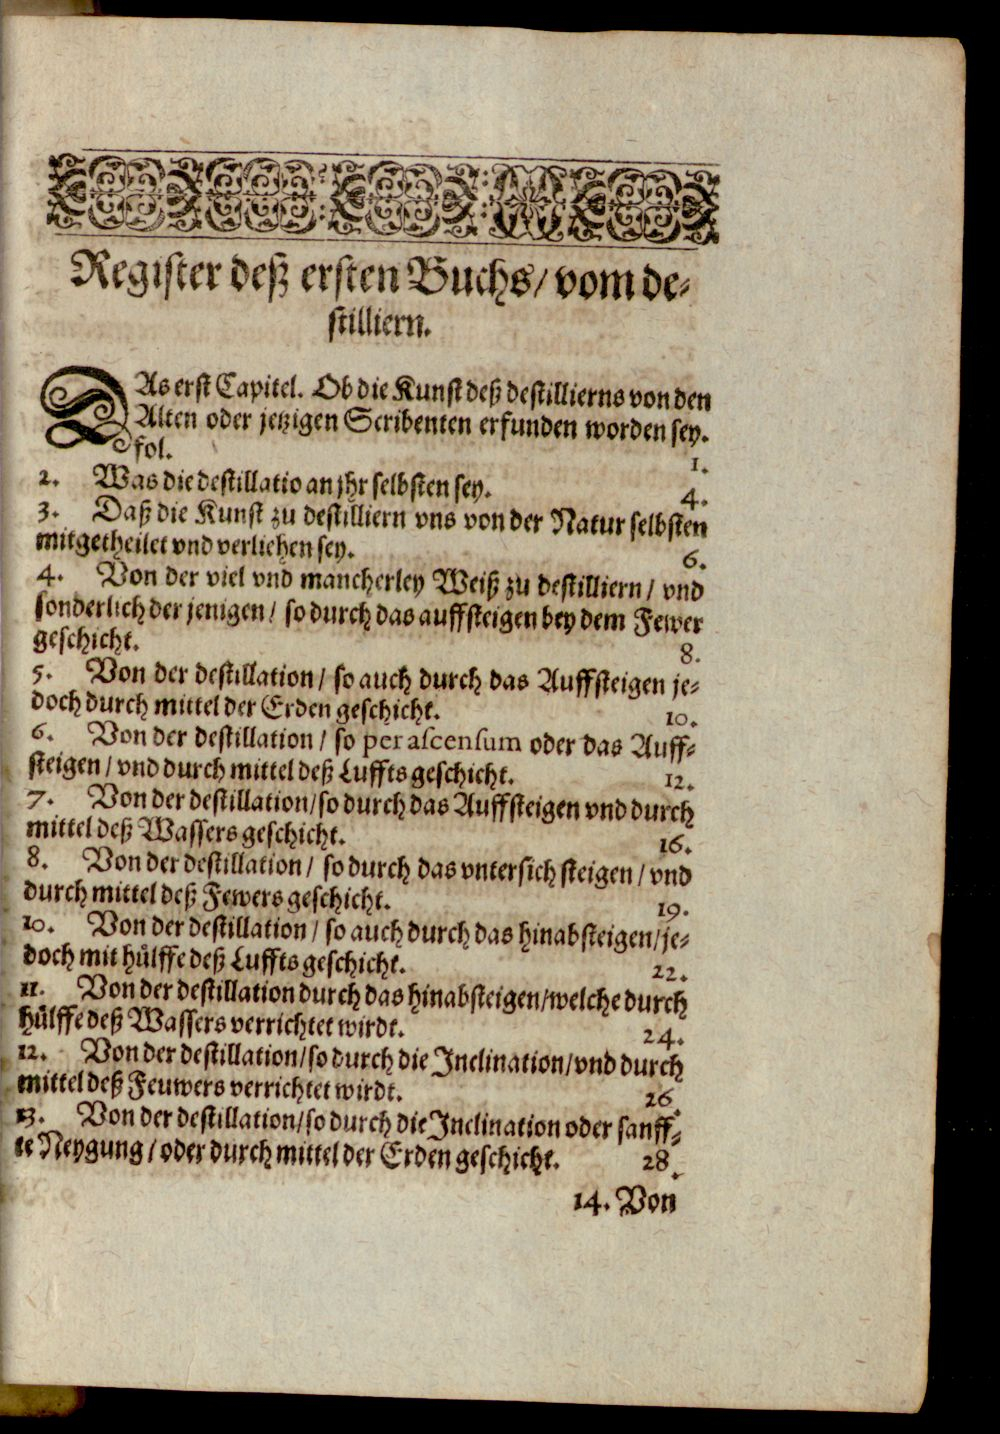 Register deß ersten Buchs/ vom de-
stilliern.
DAs erst Capitel. Ob die Kunst deß destillierns von den
Alten oder jetzigen Scribenten erfunden worden sey.
fol. 1.
2. Was die destillatio an jhr selbsten sey. 4.
3. Daß die Kunst zu destilliern vns von der Natur selbsten
mitgetheilet vnd verliehen sey. 6.
4. Von der viel vnd mancherley Weiß zu destilliern / vnd
sonderlich der jenigen / so durch das auffsteigen bey dem Fewer
geschicht. 8.
5. Von der destillation / so auch durch das Auffsteigen je-
doch durch mittel der Erden geschicht. 10.
6. Von der destillation / so per ascensum oder das Auff-
steigen / vnd durch mittel deß Luffts geschicht. 12.
7. Von der destillation/so durch das Auffsteigen vnd durch
mittel deß Wassers geschicht. 16.
8. Von der destillation / so durch das vntersich steigen / vnd
durch mittel deß Fewers geschicht. 19.
10. Von der destillation / so auch durch das hinabsteigen/je-
doch mit hülffe deß Luffts geschicht. 22.
11. Von der destillation durch das hinabsteigen/welche durch
hülffe deß Wassers verrichtet wirdt. 24.
12. Von der destillation/so durch die Inclination/vnd durch
mittel deß Feuwers verrichtet wirdt. 26.
13. Von der destillation/so durch die Inclination oder sanff-
te Neygung / oder durch mittel der Erden geschicht. 28.
14. Von